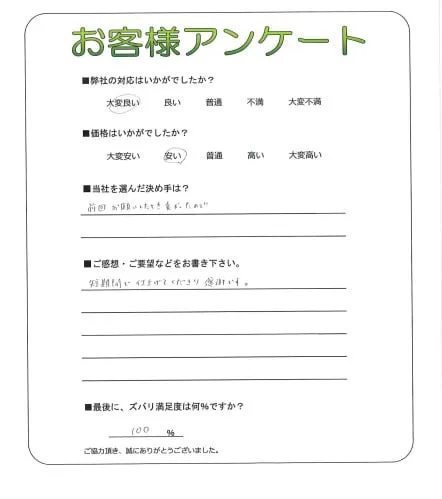 お客様アンケート
■弊社の対応はいかがでしたか?
大変良い 良い 普通 不満 大変不満
■価格はいかがでしたか?
大変安い 安い 普通 高い 大変高い
■当社を選んだ決め手は?
前回お願いしたとき良かったので
■ご感想・ご要望などをお書き下さい。
短期間で仕上げてくださり感謝です。
■最後に、ズバリ満足度は何%ですか?
100 %
ご協力頂き、誠にありがとうございました。